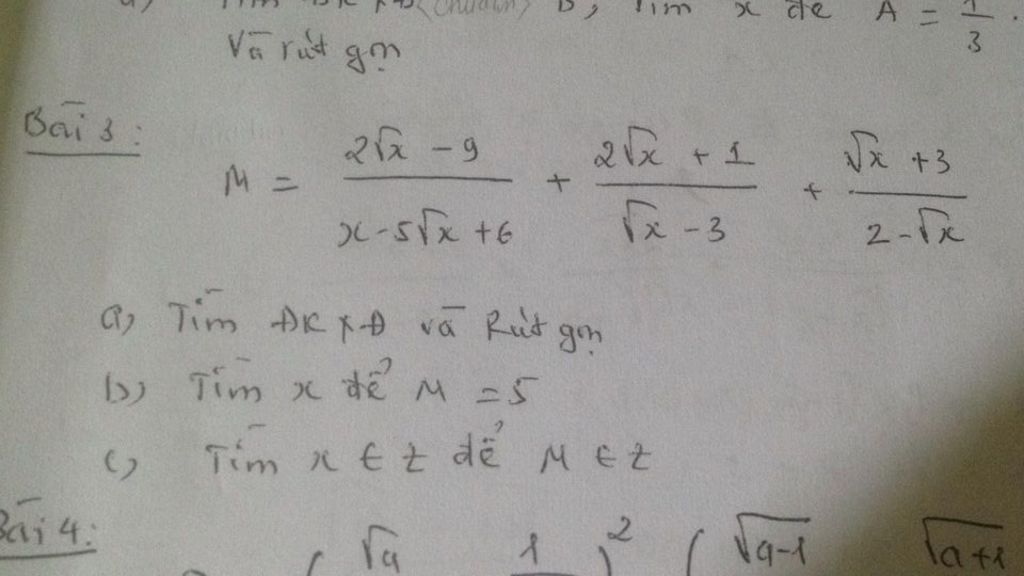 Tìm ĐK XĐ (chuẩn) b, Tìm x để A = 1/3.
Và rút gọn
Bài 3:
M = (2√x - 9)/(x - 5√x + 6) + (2√x + 1)/(√x - 3) + (√x + 3)/(2 - √x)
a, Tìm ĐK XĐ và Rút gọn
b) Tìm x để M = 5
c) Tìm x ∈ Z để M ∈ Z
Bài 4:
√a 1 )² ( √a-1 √a+1